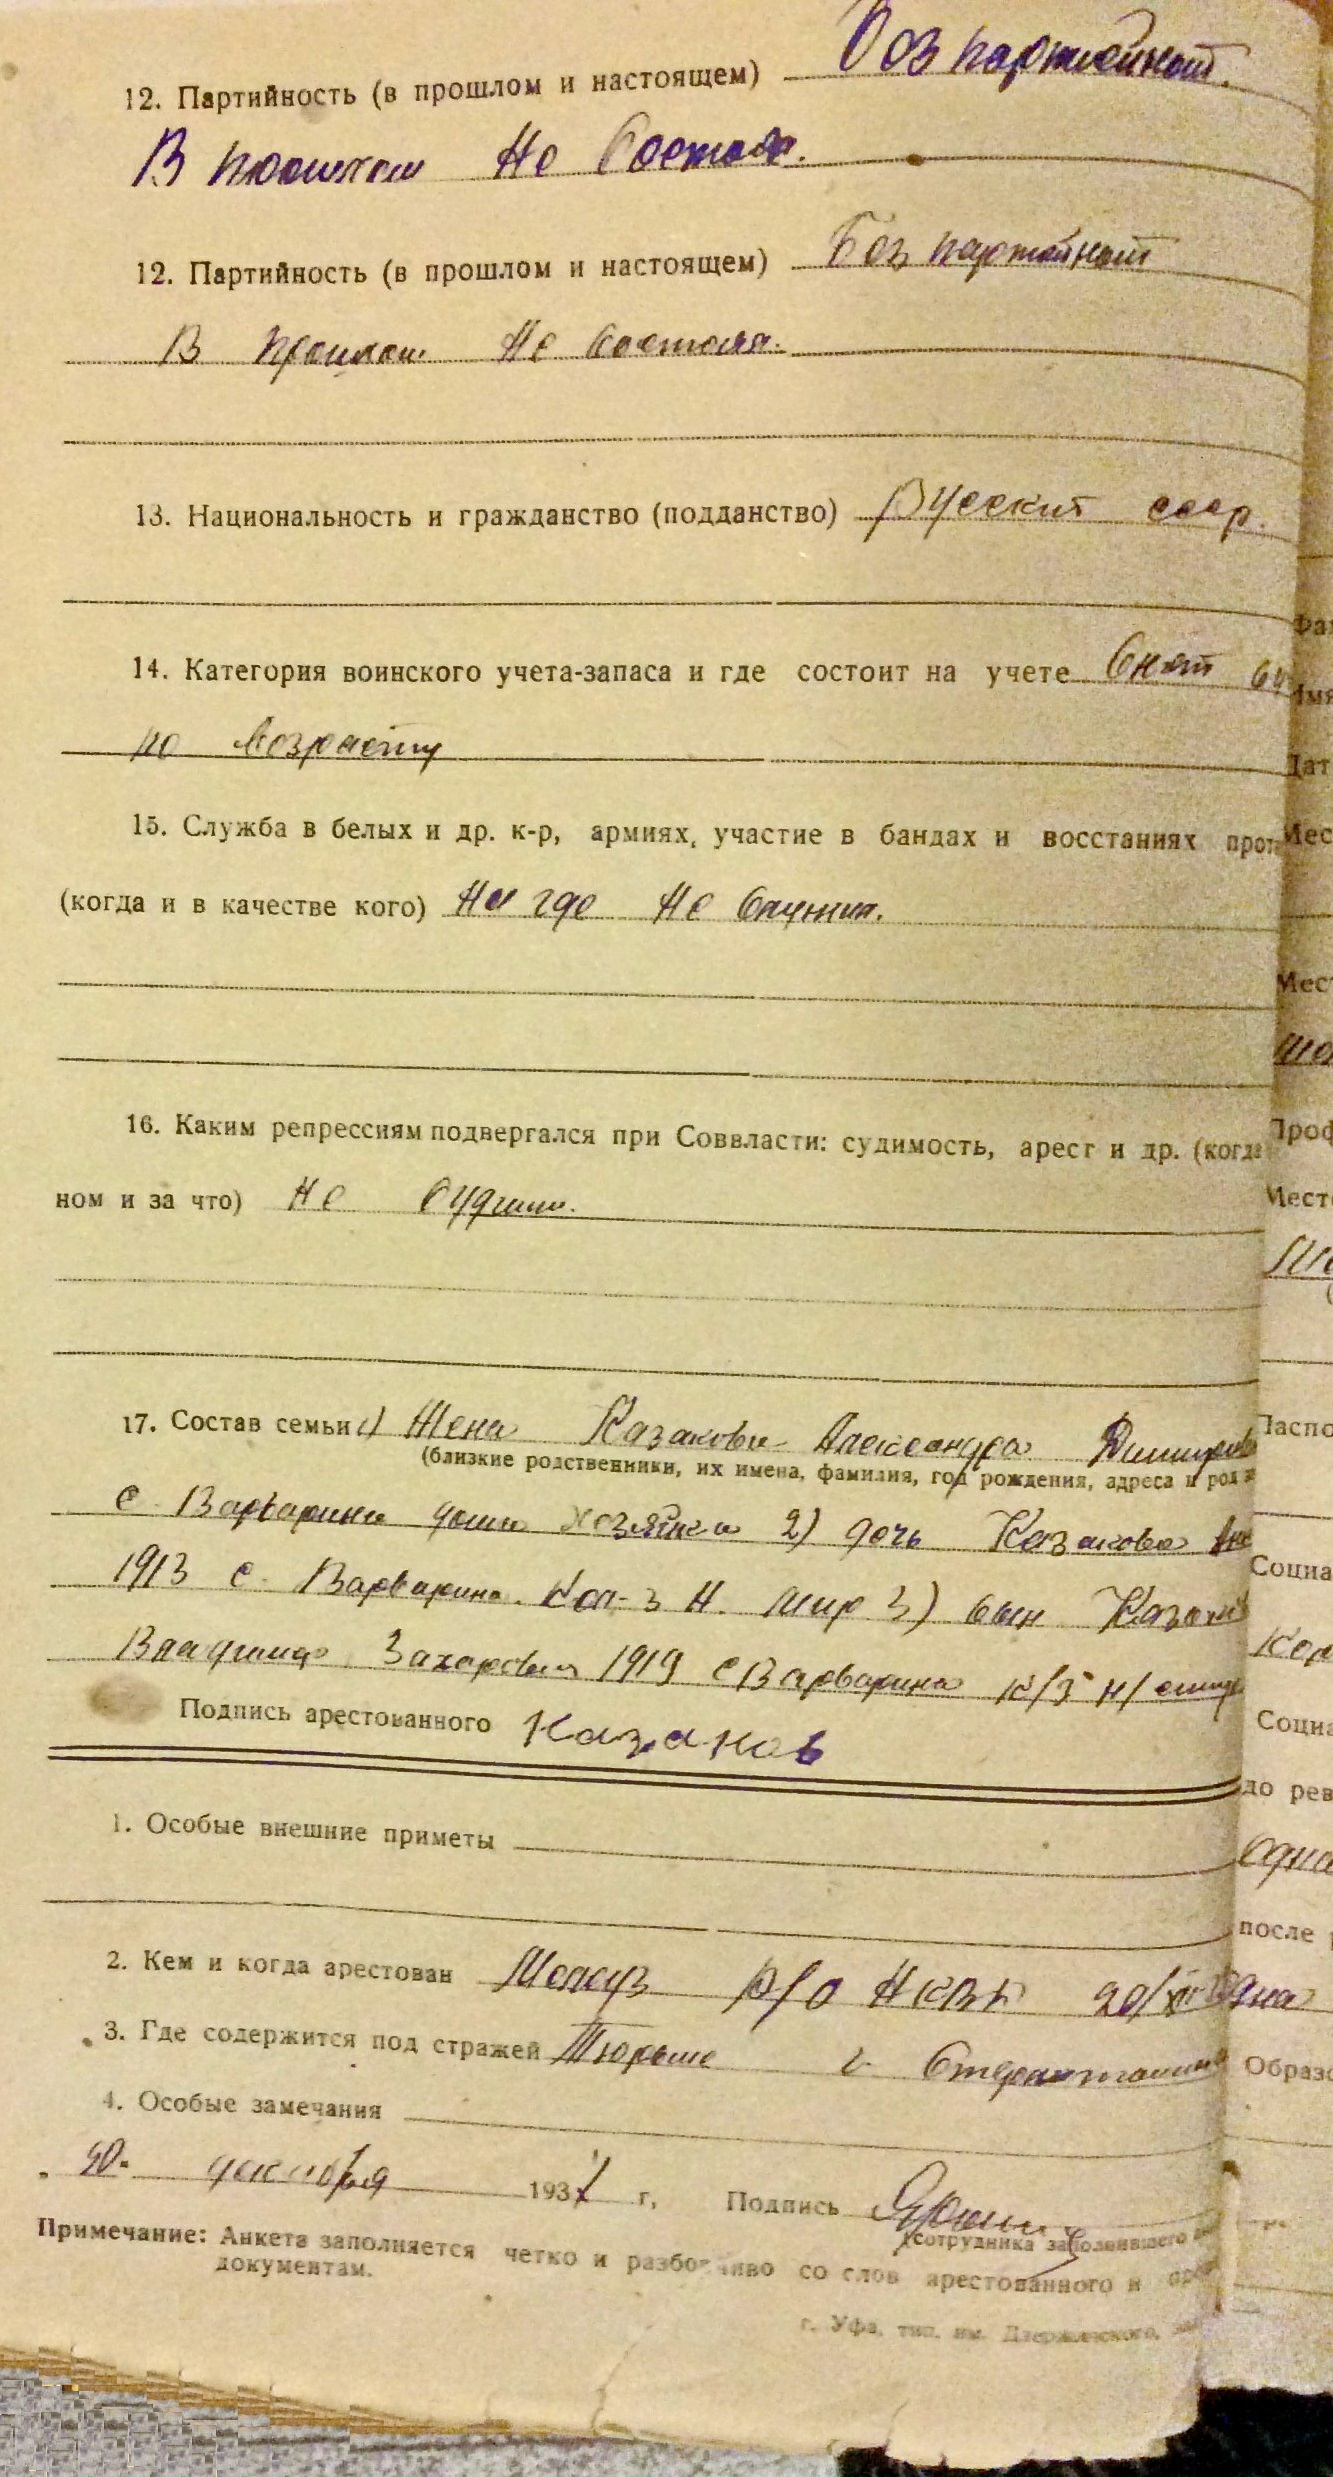 12. Партийность (в прошлом и настоящем) Безпартейный.
В прошлом Не Состоял.
12. Партийность (в прошлом и настоящем) Безпартейный
В прошлом Не Состоял.
13. Национальность и гражданство (подданство) Русский ссср.
Фа
14. Категория воинского учета-запаса и где состоит на учете Снят
Имя
по возрасту
Дат
15. Служба в белых и др. к-р, армиях, участие в бандах и восстаниях прот
Мес
(когда и в качестве кого) Ни где Не Служил.
Мест
16. Каким репрессиям подвергался при Соввласти: судимость, арест и др. (когда
Проф
ном и за что) Не Судим.
Мест
17. Состав семьи 1) Жена Казакова Александра
Паспо
(близкие родственники, их имена, фамилия, год рождения, адреса и род
с Варварина дома хозяйка 2) дочь Казакова
Социа
1913 с. Варварина. Кол-з Н. мир 3) сын Казак
Владимир Захарович 1919 с Варварина к/з н/
Подпись арестованного Казаков
Социа
до рев
1. Особые внешние приметы
Одна
после
2. Кем и когда арестован Мелеуз р/о НКВД 20/XII
3. Где содержится под стражей Тюрьме г. Стерлитамак
Образо
4. Особые замечания
декабря 1937 г, Подпись
(сотрудника заполнившего
Примечание: Анкета заполняется четко и разборчиво со слов арестованного и
документам.
г. Уфа, тип. им. Дзержинского,